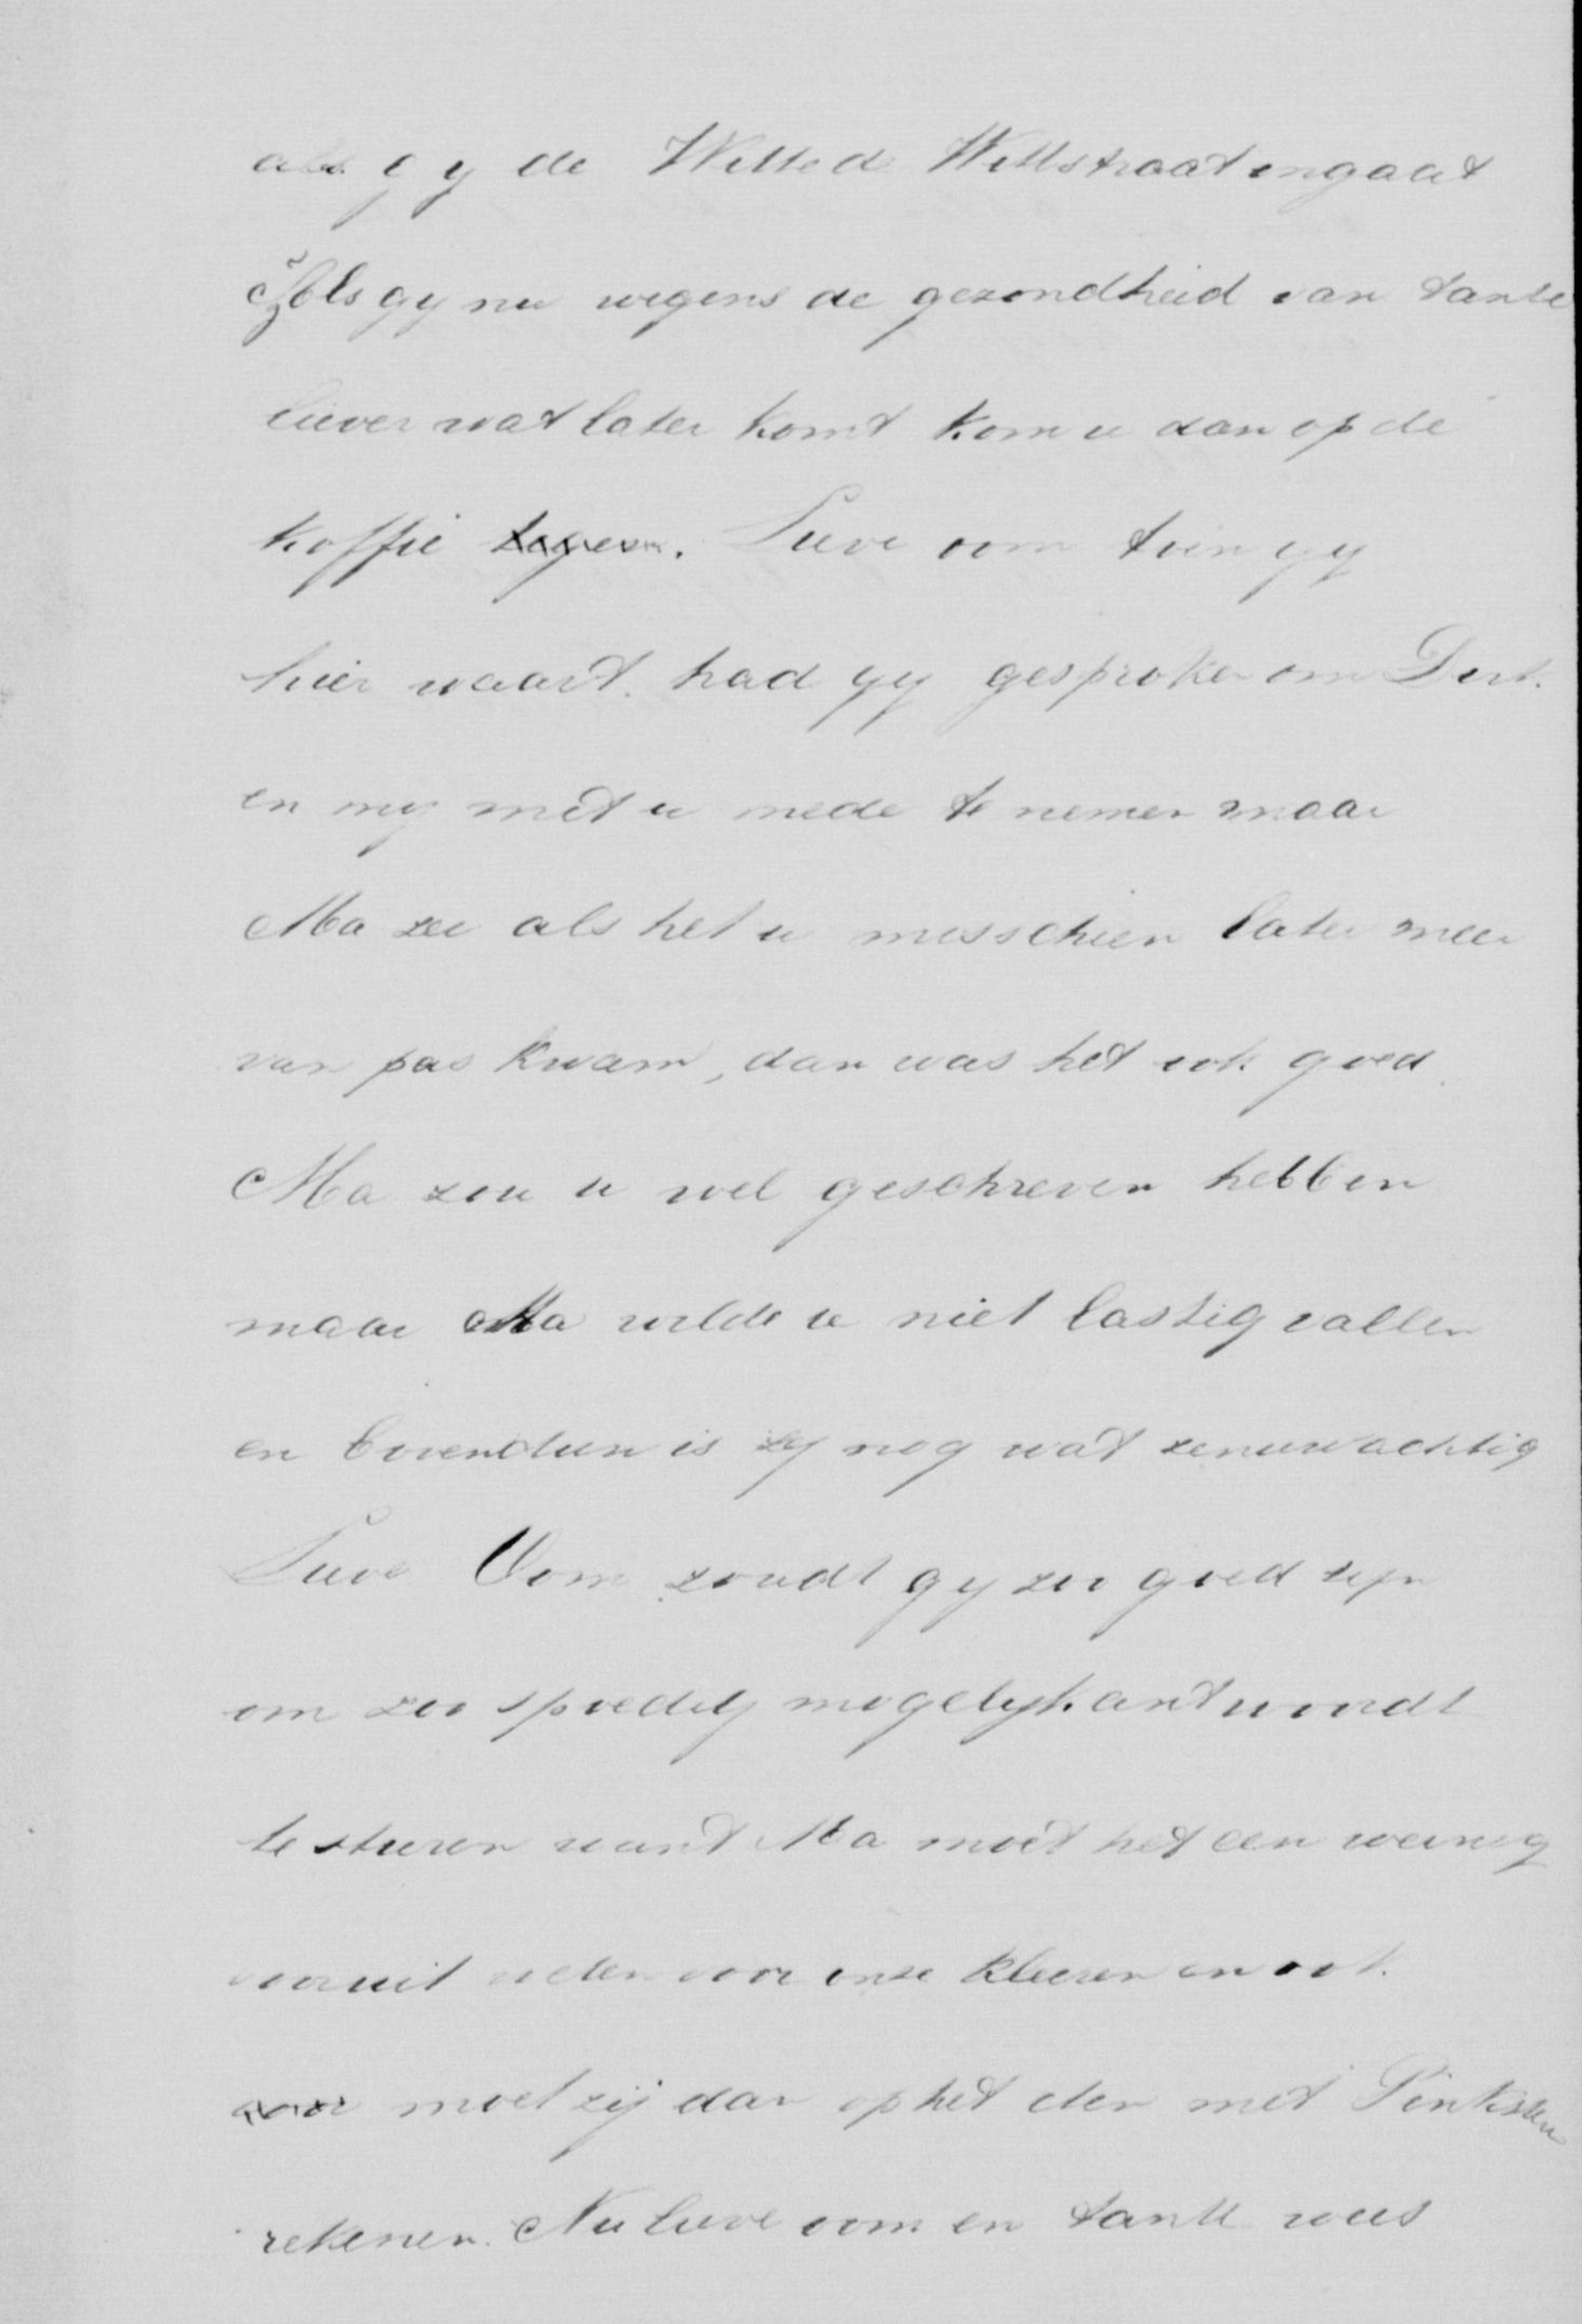 als gy de Witte d Withstraat ingaat
Als gy nu wegens de gezondheid van tante
liever wat later komt kom u dan op de
koffie tegen. Lieve oom toen gy
hier waart had gy gesproken om Dirk
en my met u mede te nemen maar
Ma zei als het u misschien later meer
van pas kwam, dan was het ook goed
Ma zou u wel geschreven hebben
maar Ma wilde u niet lastig vallen
en bovendien is zy nog wat zenuwachtig
Lieve Oom zoudt gy zoo goed zijn
om zoo spoedig mogelyk antwoordt
te sturen want Ma moet het een weinig
vooruit weten voor onze kleeren en ook
moet zij dan op het eten met Pinksten
rekenen. Nu lieve oom en tante wees